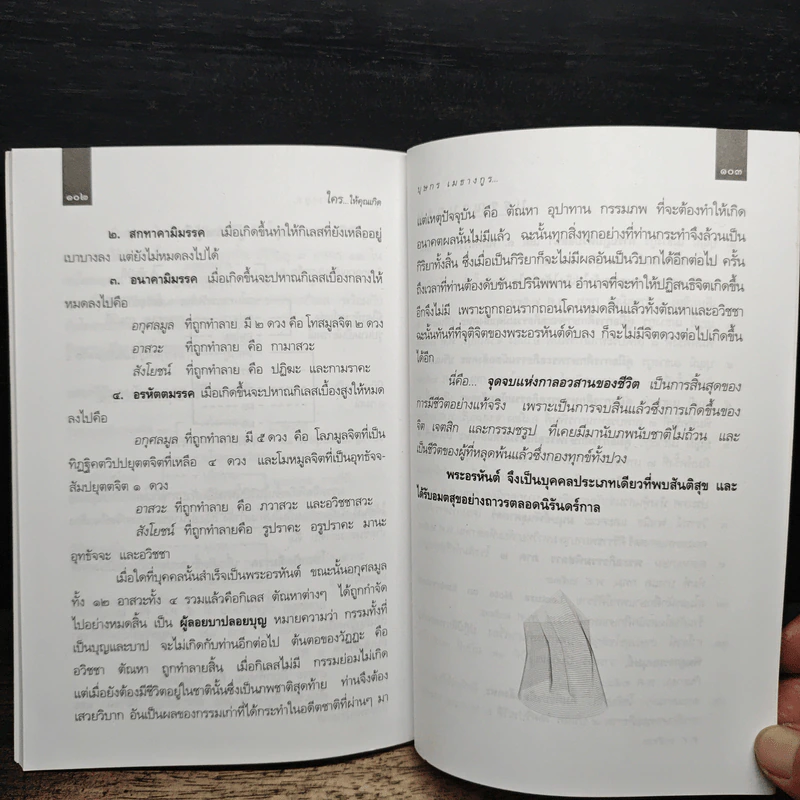 ๑๐๒
ใคร...ให้คุณเกิด
๒. สกทาคามิมรรค เมื่อเกิดขึ้นทำให้กิเลสที่ยังเหลืออยู่
เบาบางลง แต่ยังไม่หมดลงไปได้
๓. อนาคามิมรรค เมื่อเกิดขึ้นจะปหาณกิเลสเบื้องกลางให้
หมดลงไปคือ
อกุศลมูล ที่ถูกทำลาย มี ๒ ดวง คือ โทสมูลจิต ๒ ดวง
อาสวะ ที่ถูกทำลาย คือ กามาสวะ
สังโยชน์ ที่ถูกทำลาย คือ ปฏิฆะ และกามราคะ
๔. อรหัตตมรรค เมื่อเกิดขึ้นจะปหาณกิเลสเบื้องสูงให้หมด
ลงไปคือ
อกุศลมูล ที่ถูกทำลาย มี ๕ ดวง คือ โลภมูลจิตที่เป็น
ทิฏฐิคตวิปปยุตตจิตที่เหลือ ๔ ดวง และโมหมูลจิตที่เป็นอุทธัจจ-
สัมปยุตตจิต ๑ ดวง
อาสวะ ที่ถูกทำลาย คือ ภวาสวะ และอวิชชาสวะ
สังโยชน์ ที่ถูกทำลายคือ รูปราคะ อรูปราคะ มานะ
อุทธัจจะ และอวิชชา
เมื่อใดที่บุคคลนั้นสำเร็จเป็นพระอรหันต์ ขณะนั้นอกุศลมูล
ทั้ง ๑๒ อาสวะทั้ง ๔ รวมแล้วคือกิเลส ตัณหาต่างๆ ได้ถูกกำจัด
ไปอย่างหมดสิ้น เป็น ผู้ลอยบาปลอยบุญ หมายความว่า กรรมทั้งที่
เป็นบุญและบาป จะไม่เกิดกับท่านอีกต่อไป ต้นตอของวัฏฏะ คือ
อวิชชา ตัณหา ถูกทำลายสิ้น เมื่อกิเลสไม่มี กรรมย่อมไม่เกิด
แต่เมื่อยังต้องมีชีวิตอยู่ในชาตินั้นซึ่งเป็นภพชาติสุดท้าย ท่านจึงต้อง
เสวยวิบาก อันเป็นผลของกรรมเก่าที่ได้กระทำในอดีตชาติที่ผ่านๆ มา
๑๐๓
บุษกร เมธางกูร...
แต่เหตุปัจจุบัน คือ ตัณหา อุปาทาน กรรมภพ ที่จะต้องทำให้เกิด
อนาคตผลนั้นไม่มีแล้ว ฉะนั้นทุกสิ่งทุกอย่างที่ท่านกระทำจึงล้วนเป็น
กิริยาทั้งสิ้น ซึ่งเมื่อเป็นกิริยาก็จะไม่มีผลอันเป็นวิบากได้อีกต่อไป ครั้น
ถึงเวลาที่ท่านต้องดับขันธปรินิพพาน อำนาจที่จะทำให้ปฏิสนธิจิตเกิดขึ้น
อีกจึงไม่มี เพราะถูกถอนรากถอนโคนหมดสิ้นแล้วทั้งตัณหาและอวิชชา
ฉะนั้นทันทีที่จุติจิตของพระอรหันต์ดับลง ก็จะไม่มีจิตดวงต่อไปเกิดขึ้น
ได้อีก
นี่คือ... จุดจบแห่งกาลอวสานของชีวิต เป็นการสิ้นสุดของ
การมีชีวิตอย่างแท้จริง เพราะเป็นการจบสิ้นแล้วซึ่งการเกิดขึ้นของ
จิต เจตสิก และกรรมชรูป ที่เคยมีมานับภพนับชาติไม่ถ้วน และ
เป็นชีวิตของผู้ที่หลุดพ้นแล้วซึ่งกองทุกข์ทั้งปวง
พระอรหันต์ จึงเป็นบุคคลประเภทเดียวที่พบสันติสุข และ
ได้รับอมตสุขอย่างถาวรตลอดนิรันดร์กาล